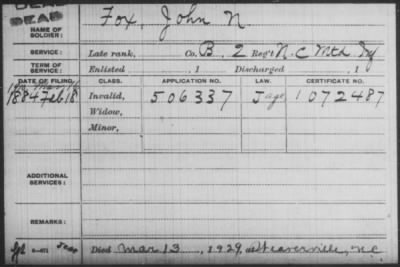 DEAD
DEAD
NAME OF SOLDIER: Fox, John N
SERVICE: Late rank, Co. B, 2 Reg't N.C. Mtd Inf
TERM OF SERVICE: Enlisted , 1 Discharged , 1
DATE OF FILING. CLASS. APPLICATION NO. LAW. CERTIFICATE NO.
1884 Feb 18 Invalid, 506337 1072487
Widow,
Minor,
ADDITIONAL SERVICES:
REMARKS:
Died Mar 13, 1929, at Weaverville, N.C.